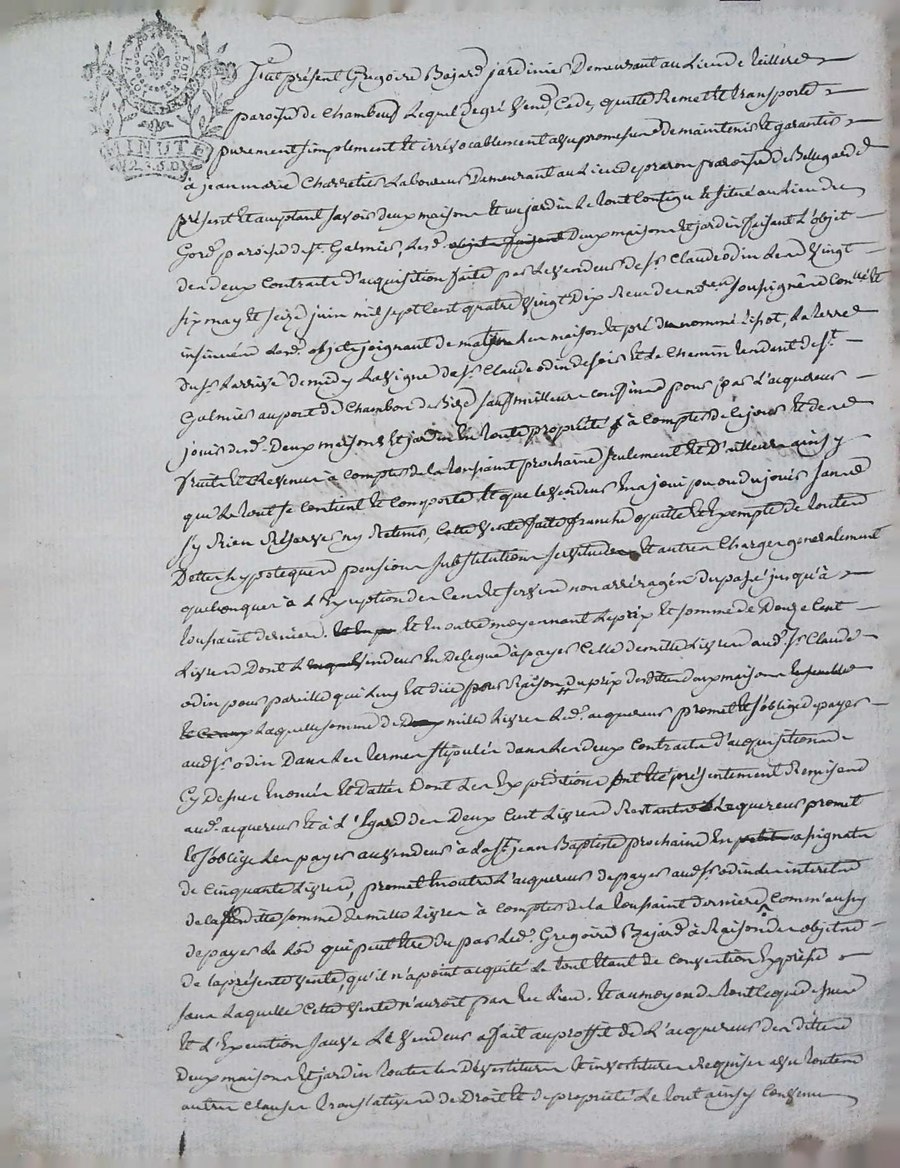 MINUTE
Fut présent Gregoire Bajard jardinier Demeurant au Lieu de
paroisse de Chambeuf Lequel de gré Vend, Cede, quitte Remet et transporte
purement simplement et irrévocablement avec promesse de maintenir et garantir
à jean marie Charretier Laboureur Demeurant au Lieu de praron paroisse de Bellegarde
présent et acceptant savoir deux maisons et un jardin Le tout Contigu et situé au Lieu de
paroisse de St. Galmier, Lesd. deux maisons et jardin faisant L'objet
des deux Contrats d'acquisition faits par Le Vendeur de Sr. Claude odin Les Vingt
six may et seize juin mil sept Cent quatre Vingt Dix Reçus des nores. soussignés Conllé et
insinués Lesd. objets joignant de matin Les maison et pré du nommé , La terre
du Sr. Larrive de midy La Vigne de Sr. Claude odin de soir et Le Chemin tendant de St.
Galmier au port de Chambon de bize sauf meilleurs confins pour par L'acquereur
jouir desd. Deux maisons et jardin En toute propriété à Compter de Ce jour et des
fruits et Revenus à Compter de La toussaint prochaine seulement et D'ailleurs ainsy
que Le tout se Contient et Comporte et que Le Vendeur En a joui pu ou du jouir sans
s'y Rien Réserver ny Retenir, Cette Vente faite franche quitte et Exempte de toutes
Dettes hypoteques pensions substitutions servitudes et autres Charges generalement
quelconques à L'Exception des Cens et servis non arréragés du passé jusqu'à
toussaint derniere et En outre moyennant Le prix et somme de Douze Cent
Livres Dont Le Vendeur En Delegue à payer Celle de mille Livres aud. Sr. Claude
odin pour pareille qui Luy Est düe pour Raison du prix desdites deux maisons
Laquelle somme de mille Livres Led. acquereur promet et s'oblige de payer
aud. Sr. odin Dans Les termes stipulés dans Les deux Contrats d'acquisitions
Cy dessus Enoncés et dattés Dont Les Expeditions ont été présentement Remises
aud. acquereur et à L'Egard des Deux Cent Livres Restantes L'acquereur promet
et s'oblige Les payer au Vendeur à La St. jean Baptiste prochaine En assignats
de Cinquante Livres, promet En outre L'acquereur de payer aud. Sr. odin Les interets
de la susditte somme de mille Livres à Compter de La toussaint derniere, Comm'aussy
de payer Le Lod qui peut être du par Led. Gregoire Bajard à Raison des objets
de la présente Vente, qu'il n'a point acquité Le tout Etant de Convention Expresse
sans Laquelle Cette Vente n'auroit pas Eu Lieu. Et au moyen de tout Ce que dessus
Et L'Execution sauve Le Vendeur a fait au proffit de L'acquereur des dittes
Deux maisons et jardin toutes Les Dévestitures et investitures Requises avec toutes
autres Clauses translatives de Droit et de propriété Le tout ainsy Convenu